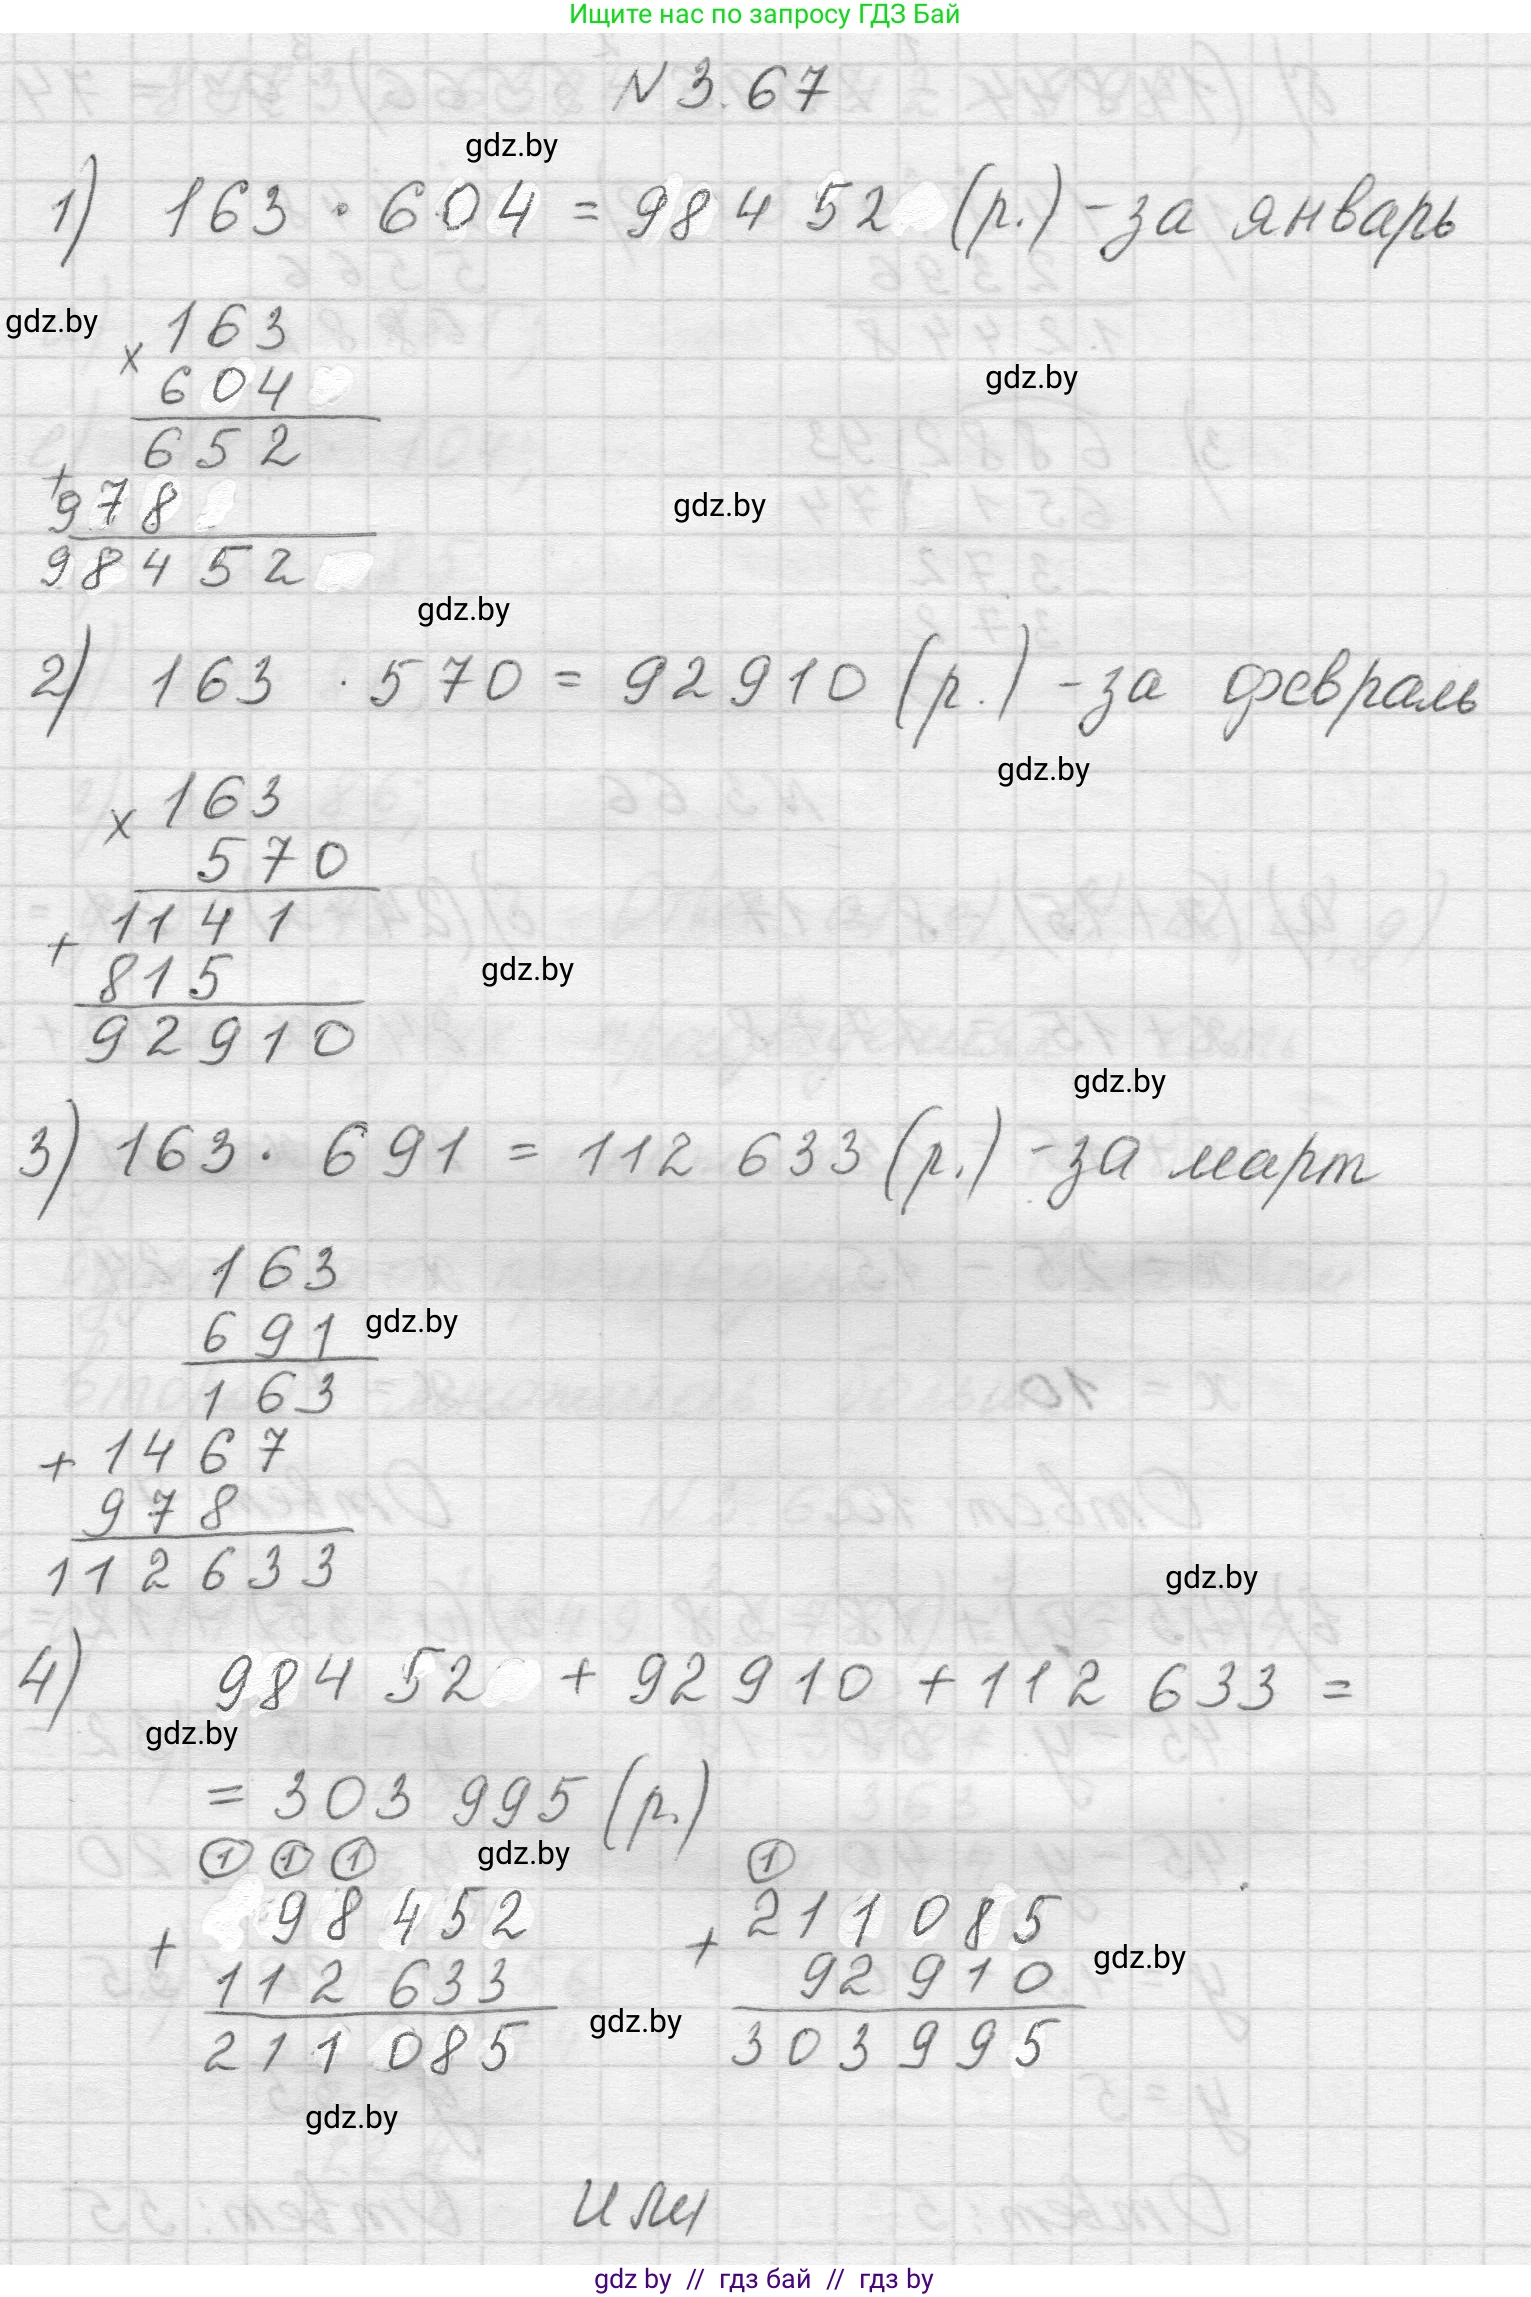 Ищите нас по запросу ГДЗ Бай
N 3.67
gdz.by
1) 163 · 604 = 98 4 52 (р.) - за январь
gdz.by
× 163
604
gdz.by
652
+
978
gdz.by
98452
gdz.by
2) 163 · 570 = 92910 (р.) - за февраль
gdz.by
× 163
570
1141
+ 815
gdz.by
92910
gdz.by
3) 163 · 691 = 112 633 (р.) - за март
163
691
gdz.by
163
+ 1467
978
112633
gdz.by
4) 984 52 + 92910 + 112 633 =
gdz.by
= 303 995 (р.)
1 1 1
gdz.by
1
+ 98452
112 633
211 085
+ 211 085
92910
303995
gdz.by
gdz.by
gdz.by
или
gdz by // гдз бай // гдз by